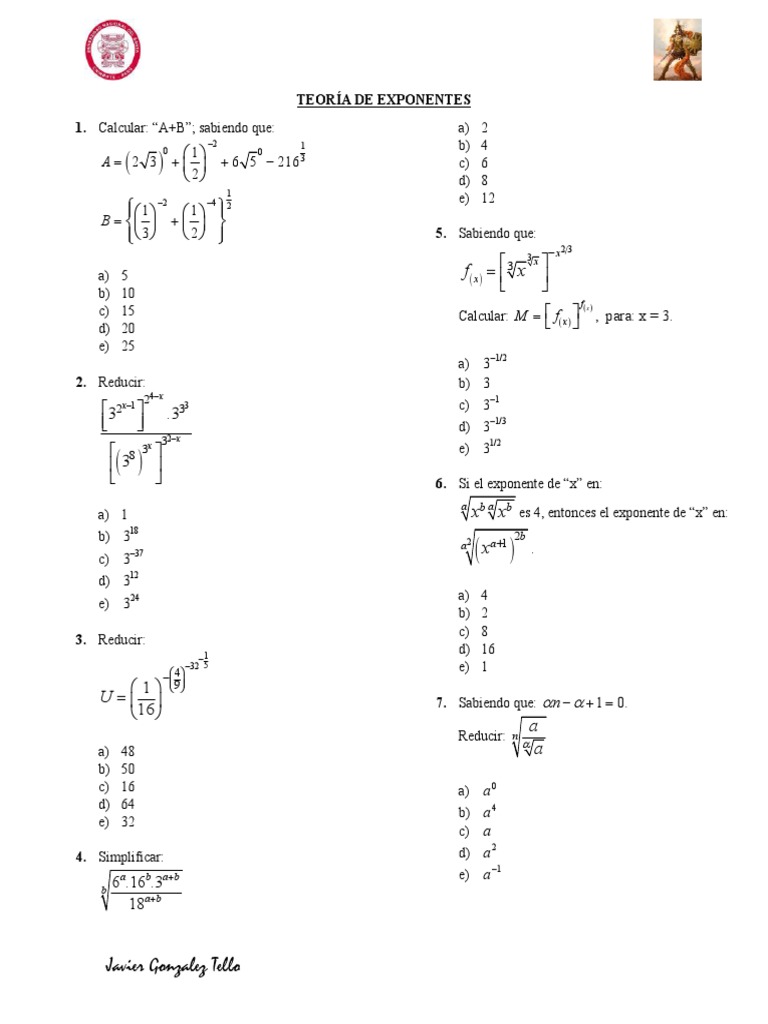 TEORÍA DE EXPONENTES
1. Calcular: “A+B”; sabiendo que:
A = (2√3)^0 + (1/2)^{-2} + 6√5^0 − 216^{1/3}
B = {(1/3)^{-2} + (1/2)^{-4}}^{1/2}
a) 5
b) 10
c) 15
d) 20
e) 25
2. Reducir:
[3^{2^{x−1}}]^{2^{4−x}} . 3^{3^3}
[(3^8)^{3^x}]^{3^{2−x}}
a) 1
b) 3^{18}
c) 3^{−37}
d) 3^{12}
e) 3^{24}
3. Reducir:
U = (1/16)^{−(4/9)^{−32^{−1/5}}}
a) 48
b) 50
c) 16
d) 64
e) 32
4. Simplificar:
\sqrt[b]{6^a.16^b.3^{a+b} / 18^{a+b}}
Javier Gonzalez Tello
a) 2
b) 4
c) 6
d) 8
e) 12
5. Sabiendo que:
f_{(x)} = [\sqrt[3]{x}^{\sqrt[3]{x}}]^{−x^{2/3}}
Calcular: M = [f_{(x)}]^{f_{(x)}}, para: x = 3.
a) 3^{−1/2}
b) 3
c) 3^{−1}
d) 3^{−1/3}
e) 3^{1/2}
6. Si el exponente de “x” en:
\sqrt[a]{x^b \sqrt[a]{x^b}} es 4, entonces el exponente de “x” en:
\sqrt[a^2]{(x^{a+1})^{2b}} .
a) 4
b) 2
c) 8
d) 16
e) 1
7. Sabiendo que: αn − α + 1 = 0.
Reducir: \sqrt[n]{a / \sqrt[α]{a}}
a) a^0
b) a^4
c) a
d) a^2
e) a^{−1}